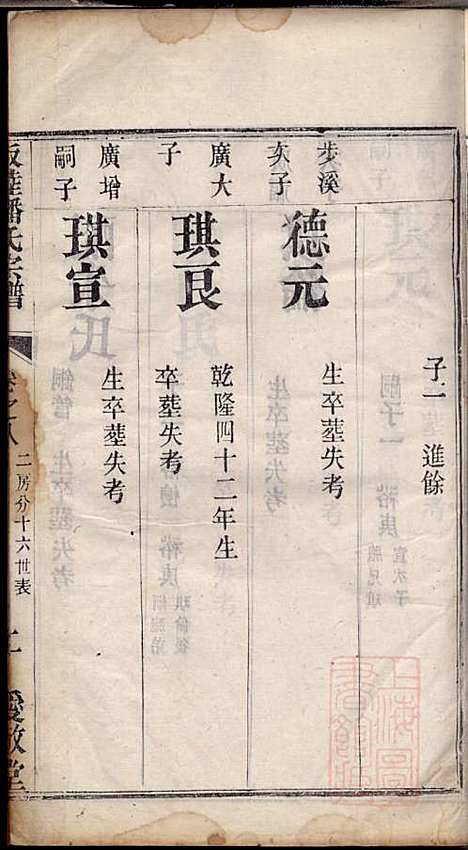 子一 進餘
步溪
次子
德元
生卒塟失考
廣大
子
琪良
乾隆四十二年生
卒塟失考
廣增
嗣子
琪宣
生卒塟失考
潘氏宗譜
卷之八
二房分十六世表
愛敬堂
上海圖書館藏